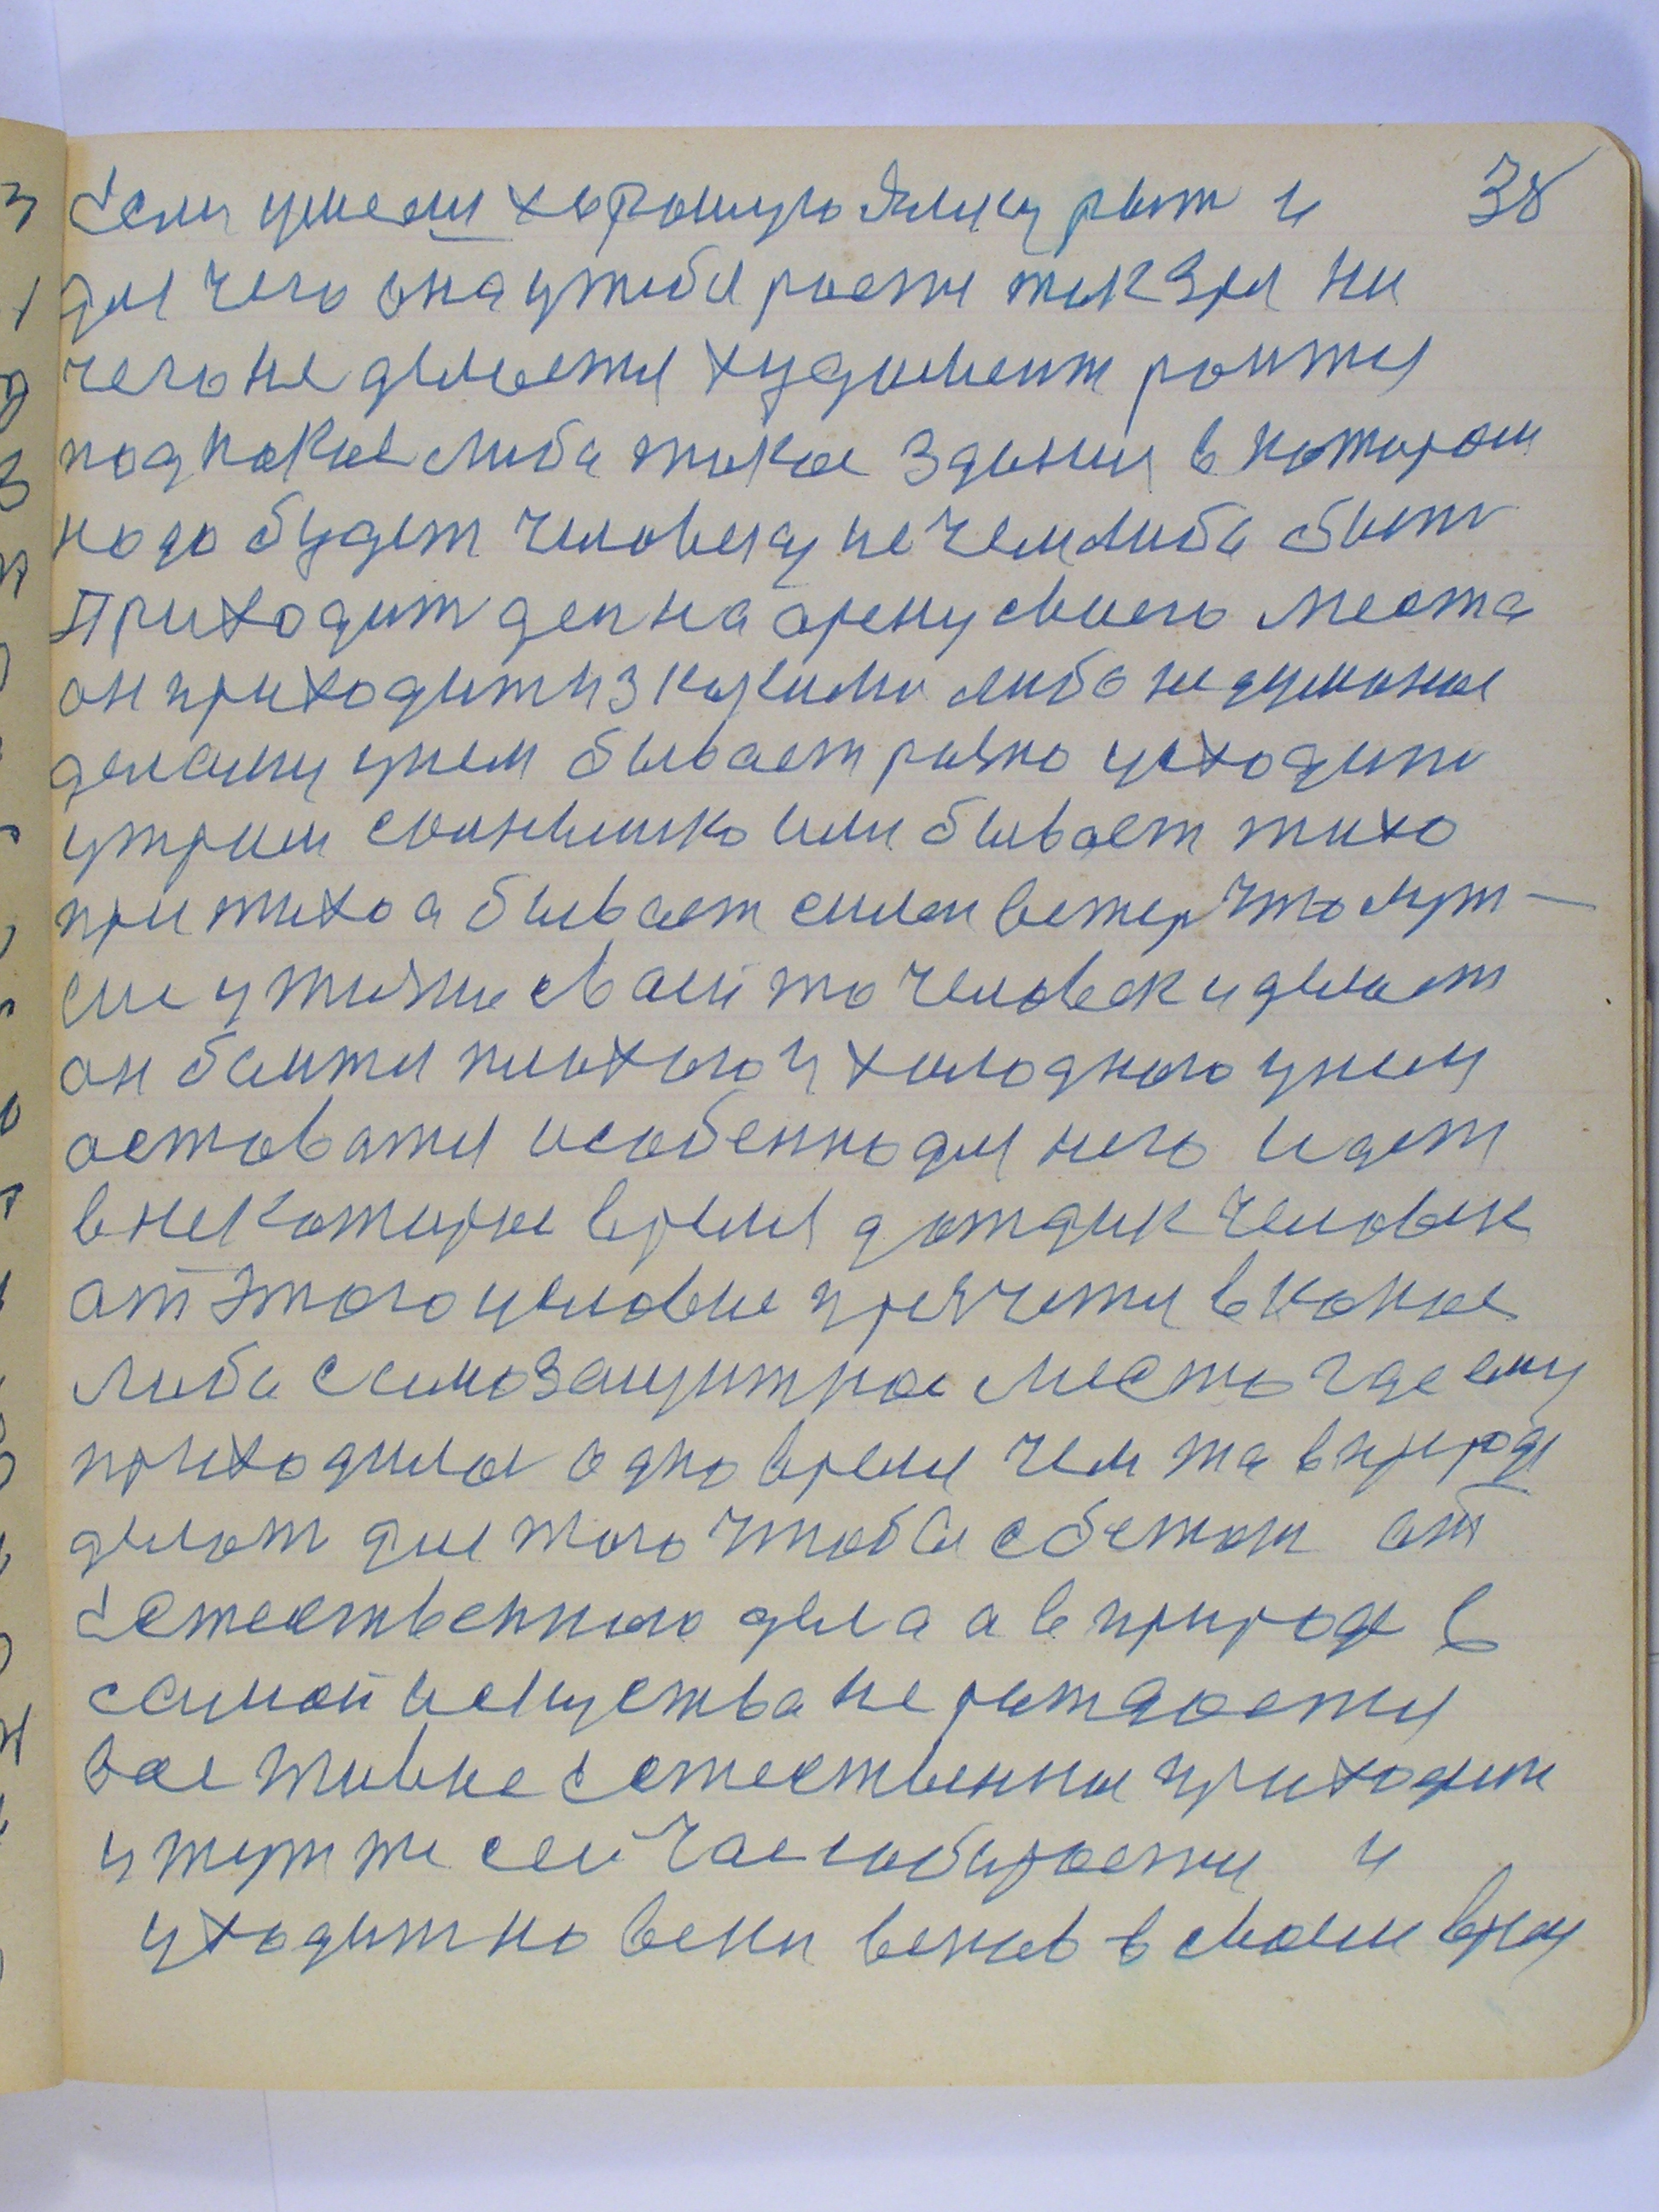 Если умеешь хорошую Ямку рыт и 38
для чего она у тибя роется так Зря ни
чего не делается худажент роится
под какое либа такое здания в котором
надо будет человеку не чем либа быт
Приходит ден на арену своего места
он приходит из какими либо не думаное
делами у нем бывает рано усходит
утром солнышко или бывает тихо
при тихо а бывает силен ветер что лут-
сие у тизне своей то человек и делает
он боится плохого и холодного у нем
остоватся особенно для него идет
в некоторое время дотдик человек
от этого условие прячится в какое
либа самозащитное место где ему
приходилос одно время чем та в природ
делат для того чтобы сбетат от
Естественного дела а в природе в
самой искуства не ротдается
все тивое Естественна приходит
и тут же сейчас собирается и
уходит на веки веков в своем врем